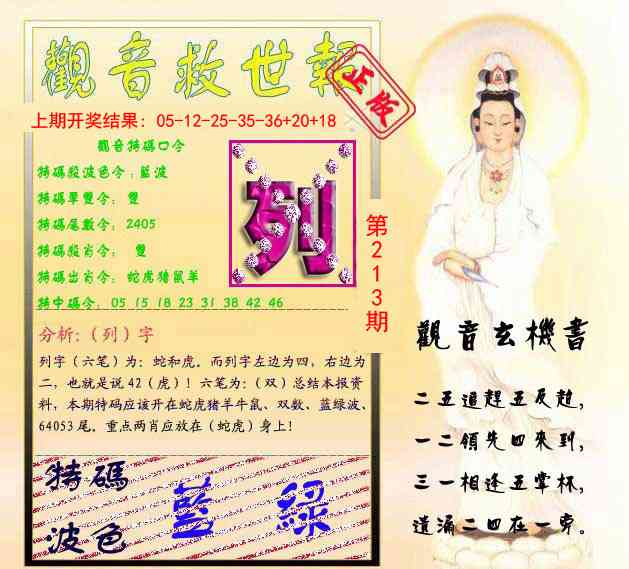 觀音救世報
正版
上期开奖结果：05-12-25-35-36+20+18
觀音特碼口令
特碼段波色令：藍波
特碼單雙令： 雙
特碼尾數令： 2405
特碼段肖令： 雙
特碼出肖令： 蛇虎猪鼠羊
特中碼令： 05 15 18 23 31 38 42 46
列
第213期
分析：（列）字
列字（六笔）为：蛇和虎。而列字左边为四，右边为
二，也就是说42（虎）！六笔为：（双）总结本报资
料，本期特码应该开在蛇虎猪羊牛鼠、双数、蓝绿波、
64053尾。重点两肖应放在（蛇虎）身上！
特碼
波色
藍 綠
觀音玄機書
二五追趕五反超，
一二領先四來到，
三一相逢五掌杯，
遺漏二四在一旁。